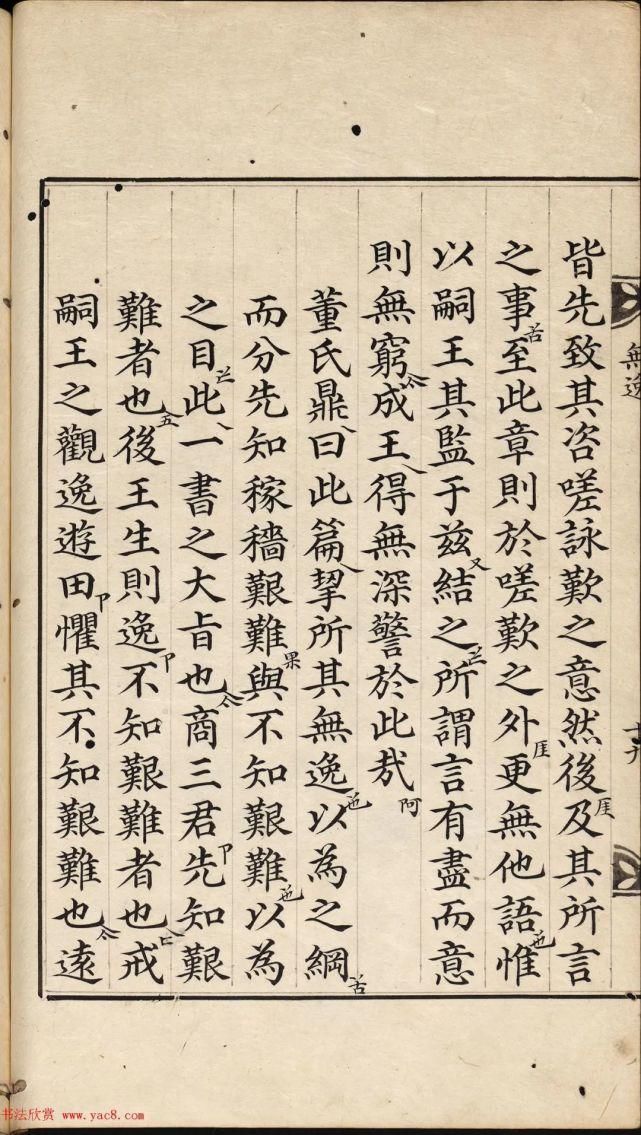 無逸
皆先致其咨嗟詠歎之意然後厓及其所言
之事苦至此章則於嗟歎之外厓更無他語惟
以嗣王其監于兹又結之所謂言有盡而意
則無窮成王得無深警於此㢤阿
董氏鼎曰此篇挈所其無逸以為之綱苦
而分先知稼穡艱難果與不知艱難以為
之目此一書之大旨也商三君先卩知艱
難者也五後王生則逸卩不知艱難者也戒
嗣王之觀逸遊田卩懼其不知艱難也遠
书法欣赏 www.yac8.com